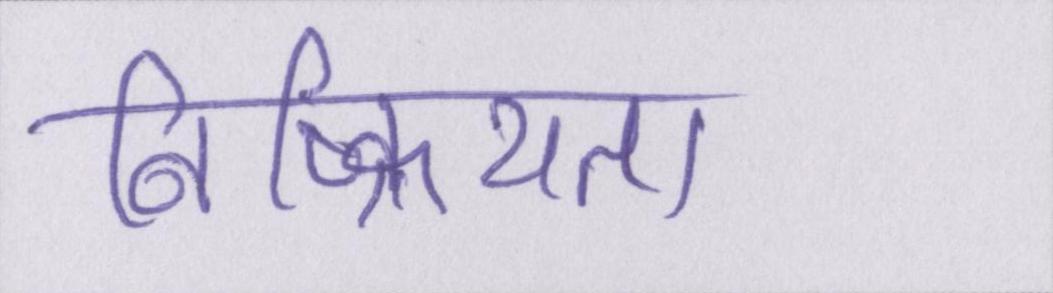 निष्क्रियता